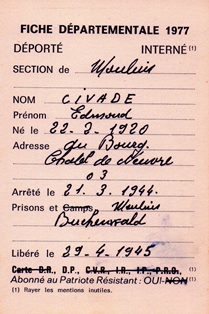 FICHE DÉPARTEMENTALE 1977
DÉPORTÉ INTERNÉ (1)
SECTION de Moulins
NOM CIVADE
Prénom Edmond
Né le 22.3.1920
Adresse au Bourg.
Chatel de Neuvre
03
Arrêté le 21.3.1944.
Prisons et Camps Moulins
Buchenwald
Libéré le 29.4.1945
Carte D.R., D.P., C.V.R., I.R., I.P., P.R.O. (1)
Abonné au Patriote Résistant : OUI-NON (1)
(1) Rayer les mentions inutiles.